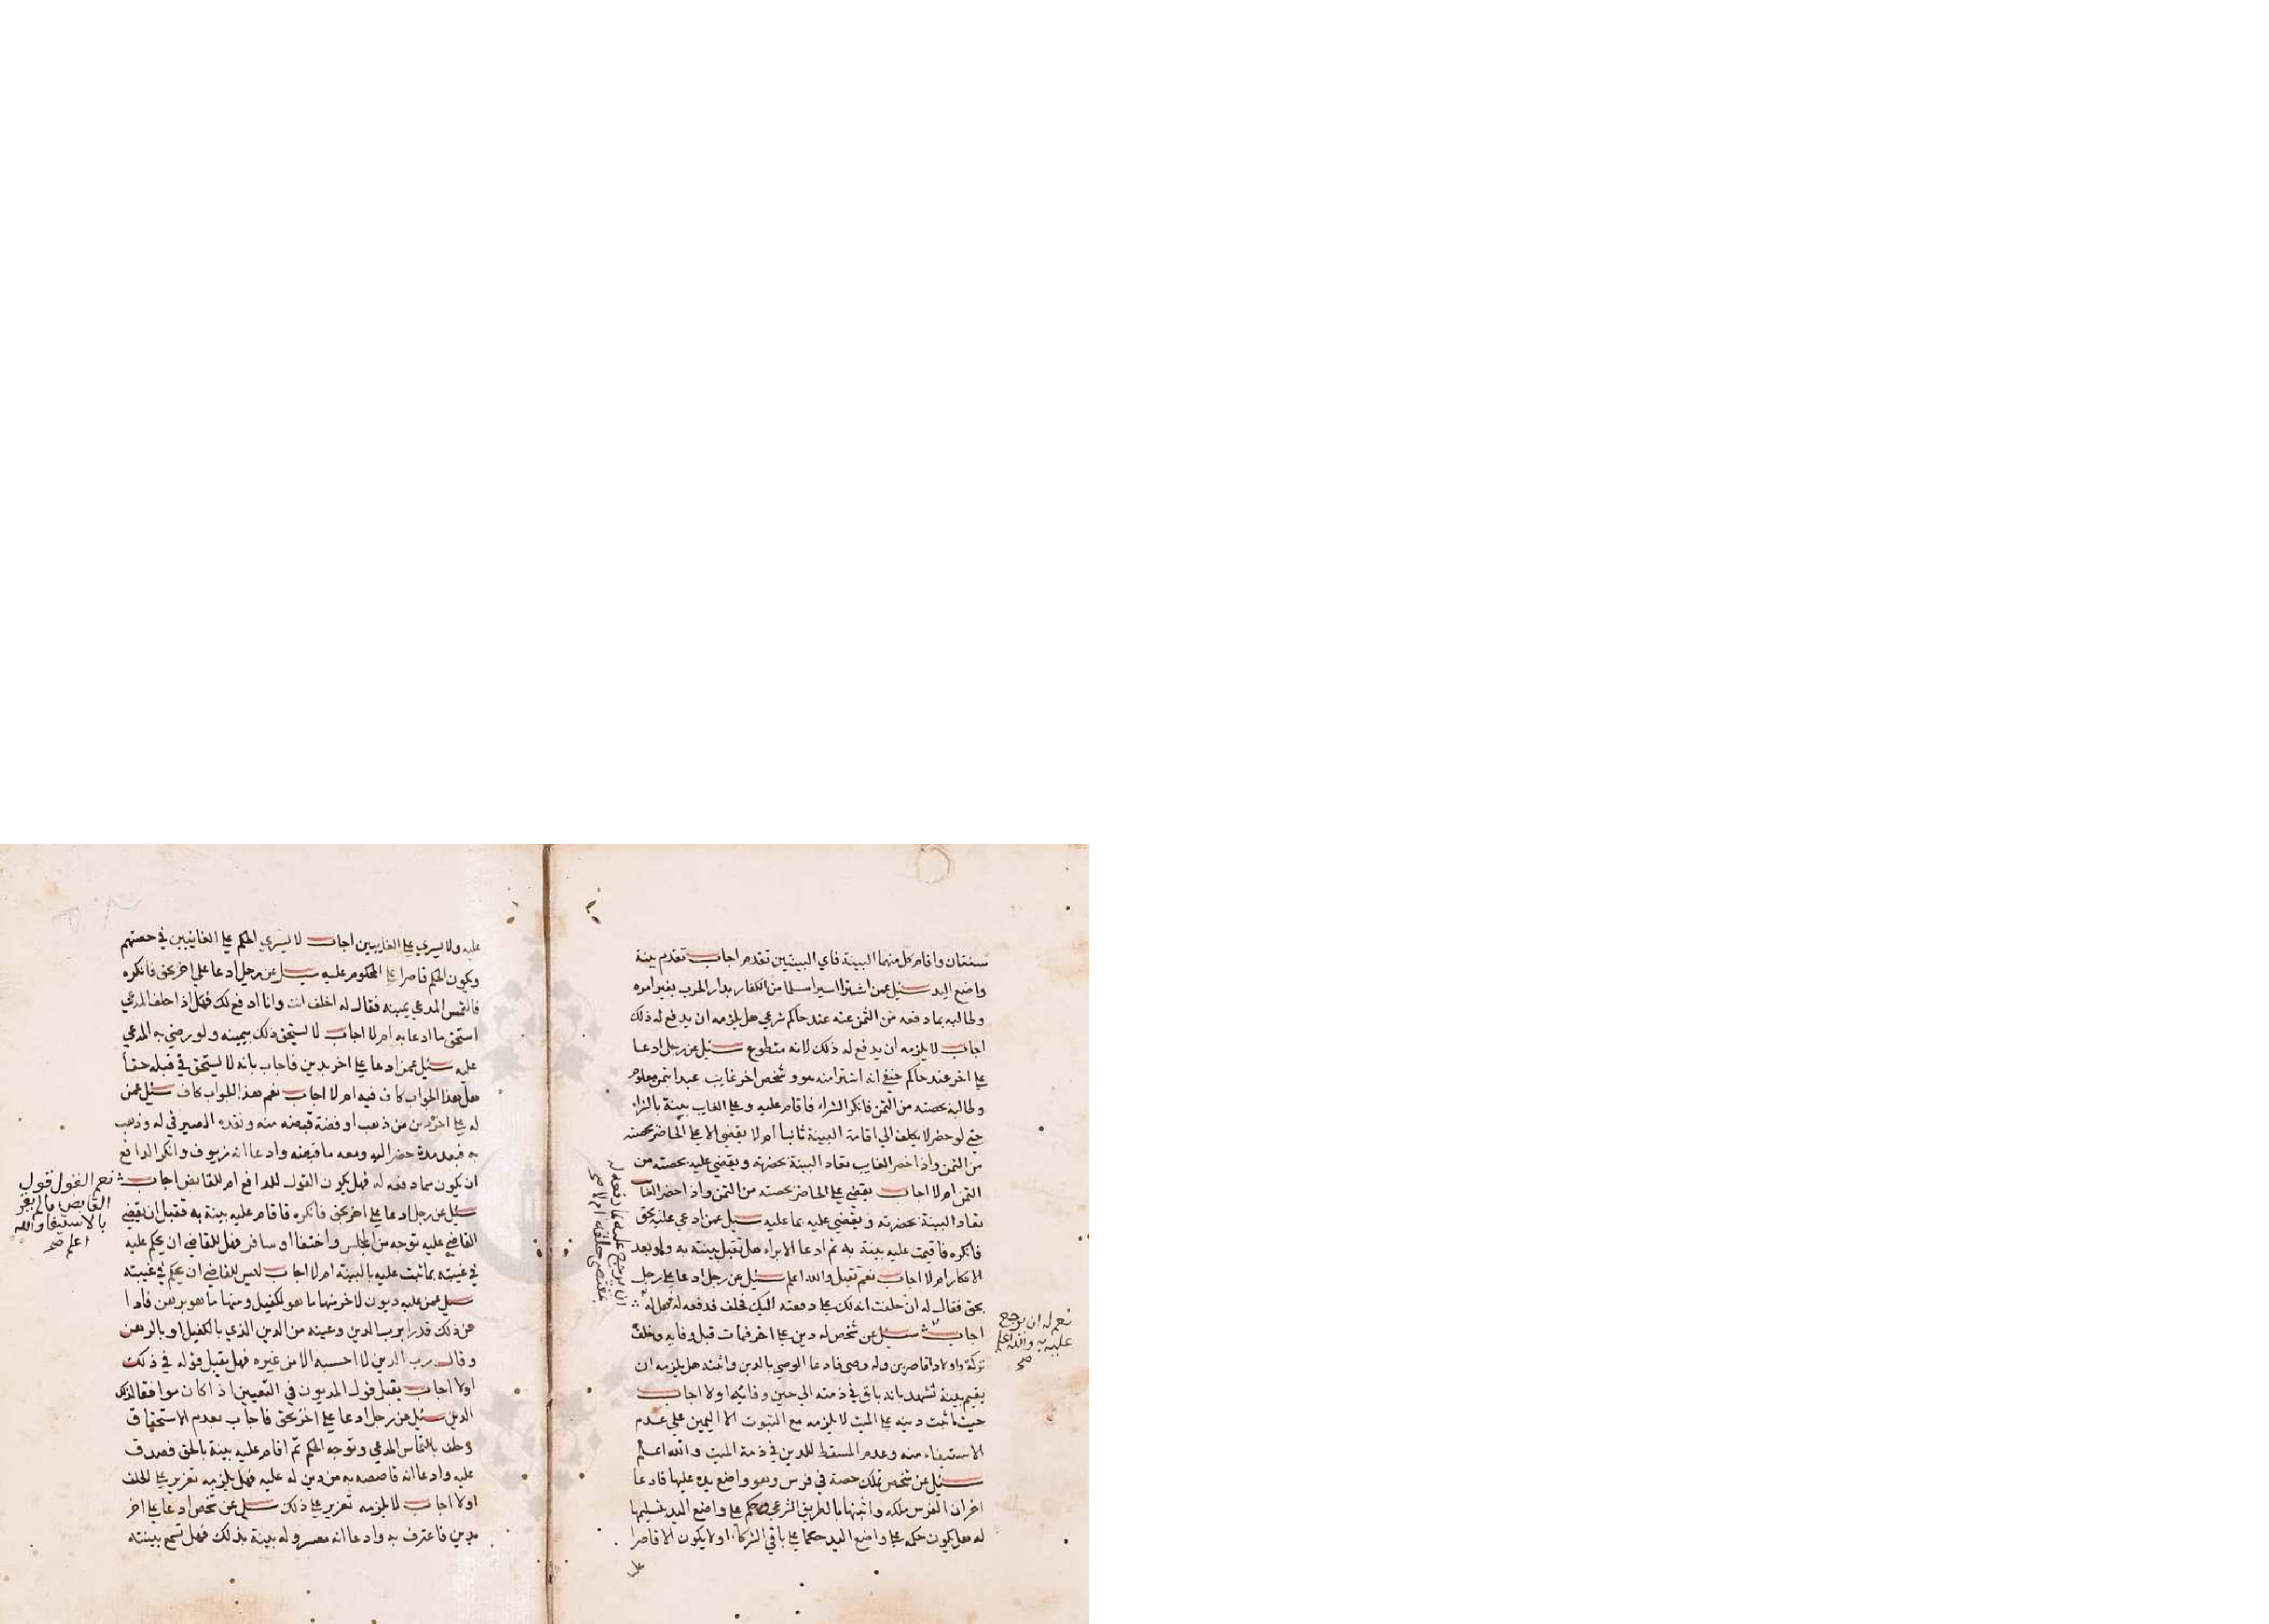 سنتان واقام كل منهما البينة فاي البينتين تقدم اجاب تقدم بينة
واضع اليد سئل عمن اشترا اسيرا مسلما من الكفار بدار الحرب بغير امره
وطالبه بما دفعه من الثمن عنه عند حاكم شرعي هل يلزمه ان يدفع له ذلك
اجاب لا يلزمه ان يدفع له ذلك لانه متطوع سئل عن رجل ادعا
على اخر عند حاكم حنفي انه اشترا منه هو وشخص اخر غايب عبدا بثمن معلوم
وطالبه بحصته من الثمن فانكر الشراء فاقام عليه وعلى الغايب بينة بالشراء
حتى لو حضر لا يكلف الى اقامة البينة ثانيا ام لا يقضي الا على الحاضر بحصته
من الثمن واذا حضر الغايب تعاد البينة بحضرته ويقضي عليه بحصته من
الثمن ام لا اجاب يقضي على الحاضر بحصته من الثمن واذا حضر الغا
تعاد البينة بحضرته ويقضي عليه بما عليه سئل عمن ادعي عليه بحق
فانكره فاقيمت عليه بينة به ثم ادعا الابراء هل تقبل بينته به ولو بعد
الانكار ام لا اجاب نعم تقبل والله اعلم سئل عن رجل ادعا على رجل
بحق فقال له ان حلفت انه لك علي دفعته اليك فحلف فدفعه له فهل له
ان يرجع عليه بما دفعه له
بمقتضى حلفه ام لا صح
اجاب سئل عن شخص له دين على اخر فمات قبل وفايه وخلف
نعم له ان يرجع
عليه به والله اعلم
صح
تركة واولادا قاصرين وله وصي فادعا الوصي بالدين واثبته هل يلزمه ان
يقيم بينة تشهد بانه باق في ذمته الي حين وفاته اولا اجاب
حيث ما ثبت دينه على الميت لا يلزمه مع الثبوت الا اليمين على عدم
الاستيفاء منه وعدم المسقط للدين في ذمة الميت والله اعلم
سئل عن شخص تملك حصة في فرس وهو واضع يده عليها فادعا
اخر ان الفرس ملكه واثبتها بالطريق الشرعي وحكم على واضع اليد بتسليمها
له هل يكون حكمه على واضع اليد حكما على باقي الشركاء اولا يكون الا قاصرا
عليه
عليه ولا يسري على الغايبين اجاب لا يسري الحكم على الغايبين في حصتهم
ويكون الحكم قاصرا على المحكوم عليه سئل عن رجل ادعا على اخر بحق فانكره
فالتمس المدعي يمينه فقال له احلف انت وانا ادفع لك فهل اذا حلف المدعي
استحق ما ادعا به ام لا اجاب لا يستحق ذلك بيمينه ولو رضي به المدعي
عليه سئل عمن ادعا على اخر بدين فاجاب بانه لا يستحق في قبله حقا
هل هذا الجواب كاف فيه ام لا اجاب نعم هذا الجواب كاف سئل عمن
له على اخر دين من ذهب او فضة قبضه منه ونقده الصيرفي له وذهب
به فبعد مدة حضر اليه ومعه ما قبضه وادعا انه زيوف وانكر الدافع
ان يكون مما دفعه له فهل يكون القول للدافع ام للقابض اجاب
نعم القول قول
القابض مالم يقر
بالاستيفا والله
اعلم صح
سئل عن رجل ادعا على اخر بحق فانكره فاقام عليه بينة به فقبل ان يقضي
القاضي عليه توجه من المجلس واختفا او سافر فهل للقاضي ان يحكم عليه
في غيبته بما ثبت عليه بالبينة ام لا اجاب ليس للقاضي ان يحكم في غيبته
سئل عمن عليه ديون لاخر منها ما هو لكفيل ومنها ما هو برهن فادا
من ذلك قدرا لرب الدين وعينه من الدين الذي بالكفيل او بالرهن
وقال رب الدين لا احسبه الا من غيره فهل يقبل قوله في ذلك
اولا اجاب يقبل قول المديون في التعيين اذا كان موافقا لذلك
الدين سئل عن رجل ادعا على اخر بحق فاجاب بعدم الاستحقاق
وحلف بالتماس المدعي وتوجه الحكم ثم اقام عليه بينة بالحق فصدق
عليه وادعا انه قاصصه به من دين له عليه فهل يلزمه تعزير على الحلف
اولا اجاب لا يلزمه تعزير على ذلك سئل عن شخص ادعا على اخر
بدين فاعترف به وادعا انه معسر وله بينة بذلك فهل تسمع بينته